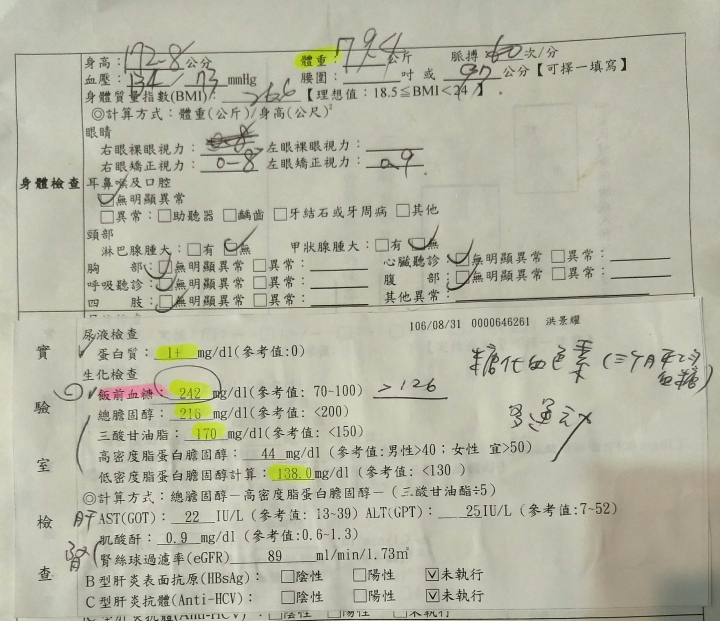 身高：172-8公分 體重：79.4公斤 脈搏 60次/分
血壓：134/73mmHg 腰圍：吋 或 97公分【可擇一填寫】
身體質量指數(BMI)：26.6【理想值：18.5≦BMI<24】
◎計算方式：體重(公斤)/身高(公尺)²
眼睛
右眼裸眼視力： 左眼裸眼視力：
右眼矯正視力：0-8 左眼矯正視力：0.9
身體檢查
耳鼻喉及口腔
☑無明顯異常
□異常：□助聽器 □齲齒 □牙結石或牙周病 □其他
頸部
淋巴腺腫大：□有 ☑無 甲狀腺腫大：□有 ☑無
胸部：☑無明顯異常 □異常： 心臟聽診：☑無明顯異常 □異常：
呼吸聽診：☑無明顯異常 □異常： 腹部：☑無明顯異常 □異常：
四肢：☑無明顯異常 □異常： 其他異常：
實驗室檢查
尿液檢查 106/08/31 0000646261 洪景耀
蛋白質：1+ mg/dl(參考值:0)
糖化血色素(三個月平均血糖)
生化檢查
飯前血糖：242 mg/dl(參考值: 70~100) >126
總膽固醇：216 mg/dl(參考值: <200)
三酸甘油脂：170 mg/dl(參考值: <150)
高密度脂蛋白膽固醇：44 mg/dl (參考值:男性>40；女性 宜>50)
低密度脂蛋白膽固醇計算：138.0mg/dl (參考值: <130 )
◎計算方式：總膽固醇－高密度脂蛋白膽固醇－ (三酸甘油酯÷5)
肝 AST(GOT)： 22 IU/L (參考值: 13~39) ALT(GPT)： 25IU/L (參考值:7~52)
肌酸酐： 0.9 mg/dl (參考值:0.6~1.3)
腎 腎絲球過濾率(eGFR) 89 ml/min/1.73㎡
B型肝炎表面抗原(HBsAg)： □陰性 □陽性 ☑未執行
C型肝炎抗體(Anti-HCV)： □陰性 □陽性 ☑未執行